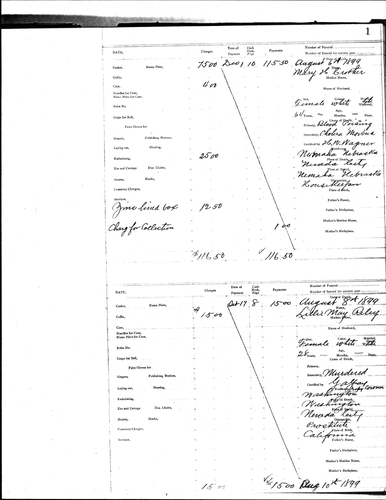 1
DATE, Charges Date of Payment Cash Book Page Payments Number of Funeral
Number of funeral for current year
Casket, Name Plate, 75 00 Dec 1 10 115.50 August 6th 1899
Coffin, Mary
Case, 4 00
Handles for Case,
Name Plate for Case, Name of Husband,
Robe No. Female White
Crape for Bell, 64 Years, Months, Days
Cause of Death,
Palm Flower for Primary, Blood
Singers, Publishing Notices, Secondary, Cholera Morbus
Laying out, Shaving, Certified by H. W. Wagner
Embalming, 25 00 Nemaha Nebraska
Use and Carriage Doz. Chairs, Nevada City
Hearse, Hacks, Nemaha Nebraska
Cemetery Charges,
Services, Father's Name,
Zinc lined box 12.50 Father's Birthplace,
Charg for Collection 1 00 Mother's Maiden Name,
Mother's Birthplace,
$116.50 116.50
DATE, Charges Date of Payment Cash Book Page Payments Number of Funeral
Number of funeral for current year
Casket, Name Plate, Oct 17 8 15 00 August 8th 1899
Coffin, $15 00 May Riley
Case,
Handles for Case, Name of Husband,
Name Plate for Case,
Robe No. Female White
Crape for Bell, 28 Years, Months, Days
Cause of Death,
Palm Flower for Primary,
Singers, Publishing Notices, Secondary, Murdered
Laying out, Shaving, Certified by
Embalming, Washington
Use and Carriage Doz. Chairs, Washington
Hearse, Hacks, Nevada City
Cemetery Charges, Prostitute
Services, California
Father's Name,
Father's Birthplace,
Mother's Maiden Name,
Mother's Birthplace,
15 $15 00 Aug 10th 1899